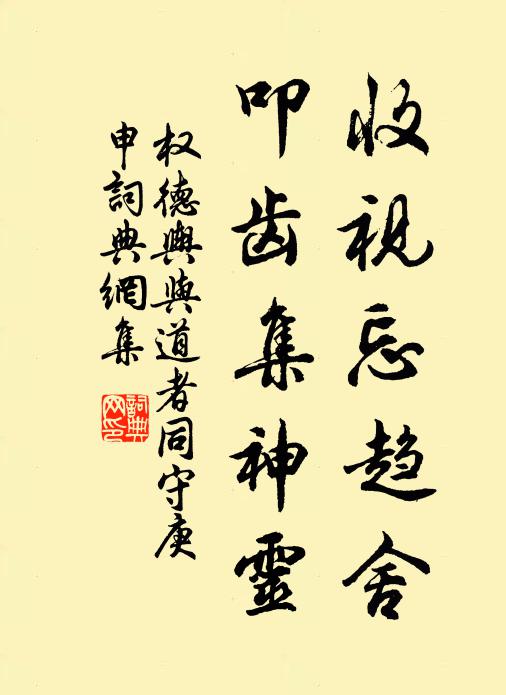 收视忘趋舍
叩齿集神靈
权德輿與道者同守庚
申詞典網集
詞典
网印